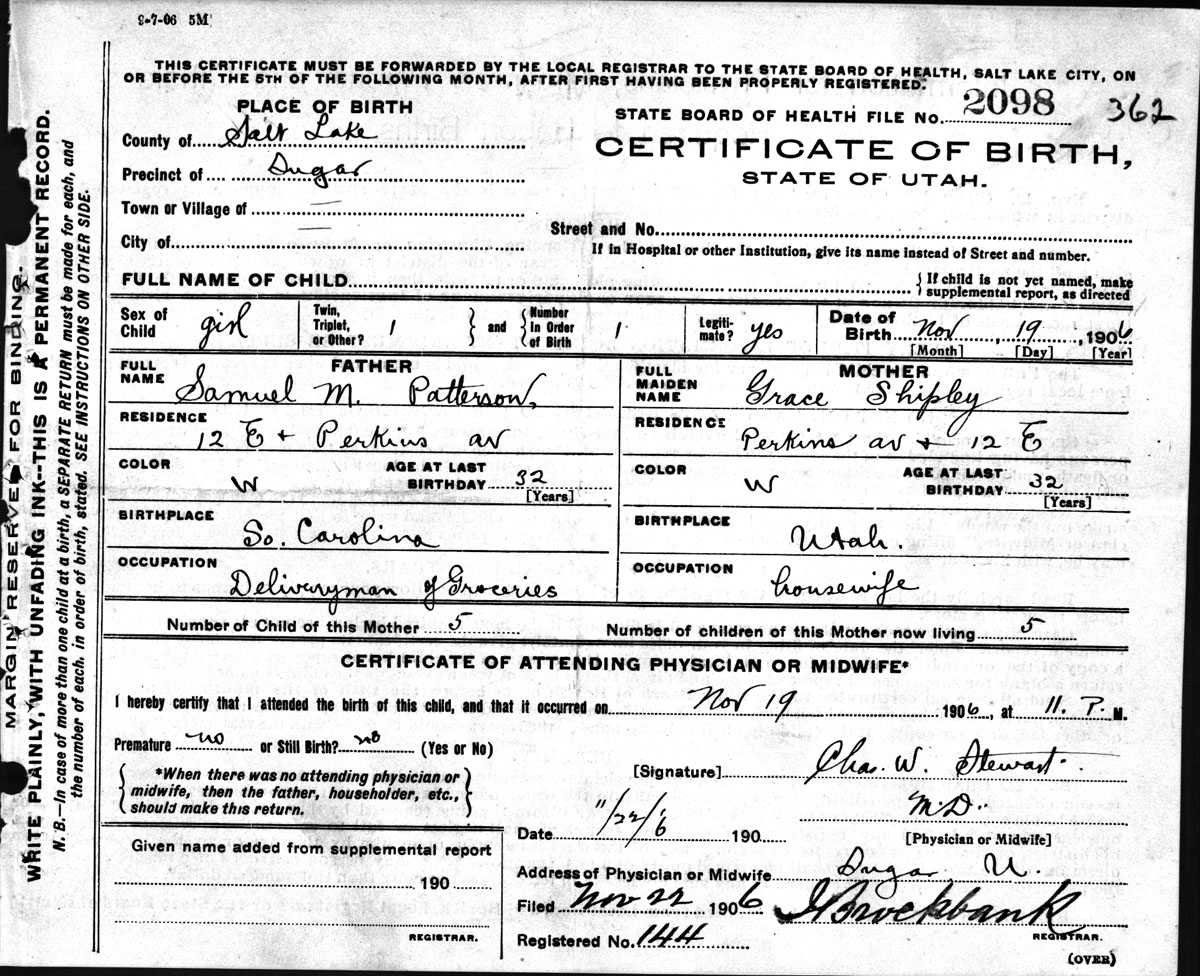 9-7-06 5M
THIS CERTIFICATE MUST BE FORWARDED BY THE LOCAL REGISTRAR TO THE STATE BOARD OF HEALTH, SALT LAKE CITY, ON
OR BEFORE THE 5TH OF THE FOLLOWING MONTH, AFTER FIRST HAVING BEEN PROPERLY REGISTERED.
PLACE OF BIRTH
County of Salt Lake
Precinct of Sugar
Town or Village of —
City of —
STATE BOARD OF HEALTH FILE No. 2098 362
CERTIFICATE OF BIRTH,
STATE OF UTAH.
Street and No.
If in Hospital or other Institution, give its name instead of Street and number.
FULL NAME OF CHILD { If child is not yet named, make supplemental report, as directed
Sex of Child girl Twin, Triplet, or Other? 1 } and { Number In Order of Birth 1 Legiti-mate? yes Date of Birth Nov 19, 1906
[Month] [Day] [Year]
FATHER
FULL NAME Samuel M. Patterson,
RESIDENCE
12 E + Perkins av
COLOR W AGE AT LAST BIRTHDAY 32
[Years]
BIRTHPLACE
So. Carolina
OCCUPATION
Deliveryman of Groceries
MOTHER
FULL MAIDEN NAME Grace Shipley
RESIDENCE
Perkins av + 12 E
COLOR W AGE AT LAST BIRTHDAY 32
[Years]
BIRTHPLACE
Utah.
OCCUPATION
housewife
Number of Child of this Mother 5 Number of children of this Mother now living 5
CERTIFICATE OF ATTENDING PHYSICIAN OR MIDWIFE*
I hereby certify that I attended the birth of this child, and that it occurred on Nov 19 1906, at 11. P. M.
Premature no or Still Birth? no (Yes or No)
{ *When there was no attending physician or
midwife, then the father, householder, etc.,
should make this return. }
[Signature] Chas. W. Stewart
M.D.
Date 11/22/6 190
[Physician or Midwife]
Given name added from supplemental report
190
REGISTRAR.
Address of Physician or Midwife Sugar U.
Filed Nov 22 1906 J Brockbank
Registered No. 144
REGISTRAR.
(OVER)
MARGIN RESERVED FOR BINDING.
WRITE PLAINLY, WITH UNFADING INK--THIS IS A PERMANENT RECORD.
N. B.—In case of more than one child at a birth, a SEPARATE RETURN must be made for each, and
the number of each, in order of birth, stated. SEE INSTRUCTIONS ON OTHER SIDE.